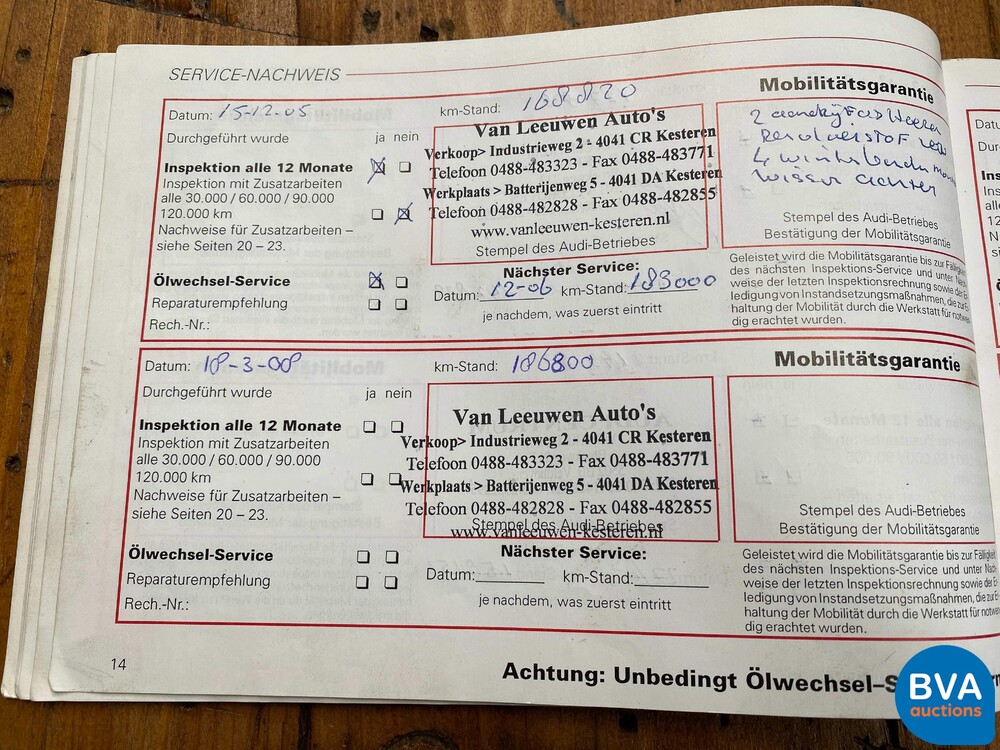 SERVICE-NACHWEIS
Datum: 15-12-05
km-Stand: 168820
Durchgeführt wurde ja nein
Inspektion alle 12 Monate
Inspektion mit Zusatzarbeiten
alle 30.000 / 60.000 / 90.000
120.000 km
Nachweise für Zusatzarbeiten –
siehe Seiten 20 – 23.
Ölwechsel-Service
Reparaturempfehlung
Rech.-Nr.:
Van Leeuwen Auto's
Verkoop> Industrieweg 2 - 4041 CR Kesteren
Telefoon 0488-483323 - Fax 0488-483771
Werkplaats > Batterijenweg 5 - 4041 DA Kesteren
Telefoon 0488-482828 - Fax 0488-482855
www.vanleeuwen-kesteren.nl
Stempel des Audi-Betriebes
Nächster Service:
Datum: 12-06 km-Stand: 183000
je nachdem, was zuerst eintritt
Mobilitätsgarantie
2
4 winterbanden
wisser achter
Stempel des Audi-Betriebes
Bestätigung der Mobilitätsgarantie
Geleistet wird die Mobilitätsgarantie bis zur Fälligkeit
des nächsten Inspektions-Service und unter Nach
weise der letzten Inspektionsrechnung sowie der E
ledigung von Instandsetzungsmaßnahmen, die zur E
haltung der Mobilität durch die Werkstatt für notwen
dig erachtet wurden.
Datum: 18-3-08
km-Stand: 186800
Durchgeführt wurde ja nein
Inspektion alle 12 Monate
Inspektion mit Zusatzarbeiten
alle 30.000 / 60.000 / 90.000
120.000 km
Nachweise für Zusatzarbeiten –
siehe Seiten 20 – 23.
Ölwechsel-Service
Reparaturempfehlung
Rech.-Nr.:
Van Leeuwen Auto's
Verkoop> Industrieweg 2 - 4041 CR Kesteren
Telefoon 0488-483323 - Fax 0488-483771
Werkplaats > Batterijenweg 5 - 4041 DA Kesteren
Telefoon 0488-482828 - Fax 0488-482855
Stempel des Audi-Betriebes
www.vanleeuwen-kesteren.nl
Nächster Service:
Datum: km-Stand:
je nachdem, was zuerst eintritt
Mobilitätsgarantie
Stempel des Audi-Betriebes
Bestätigung der Mobilitätsgarantie
Geleistet wird die Mobilitätsgarantie bis zur Fälligkeit
des nächsten Inspektions-Service und unter Nach
weise der letzten Inspektionsrechnung sowie der E
ledigung von Instandsetzungsmaßnahmen, die zur E
haltung der Mobilität durch die Werkstatt für notwen
dig erachtet wurden.
14
Achtung: Unbedingt Ölwechsel–S
BVA
auctions